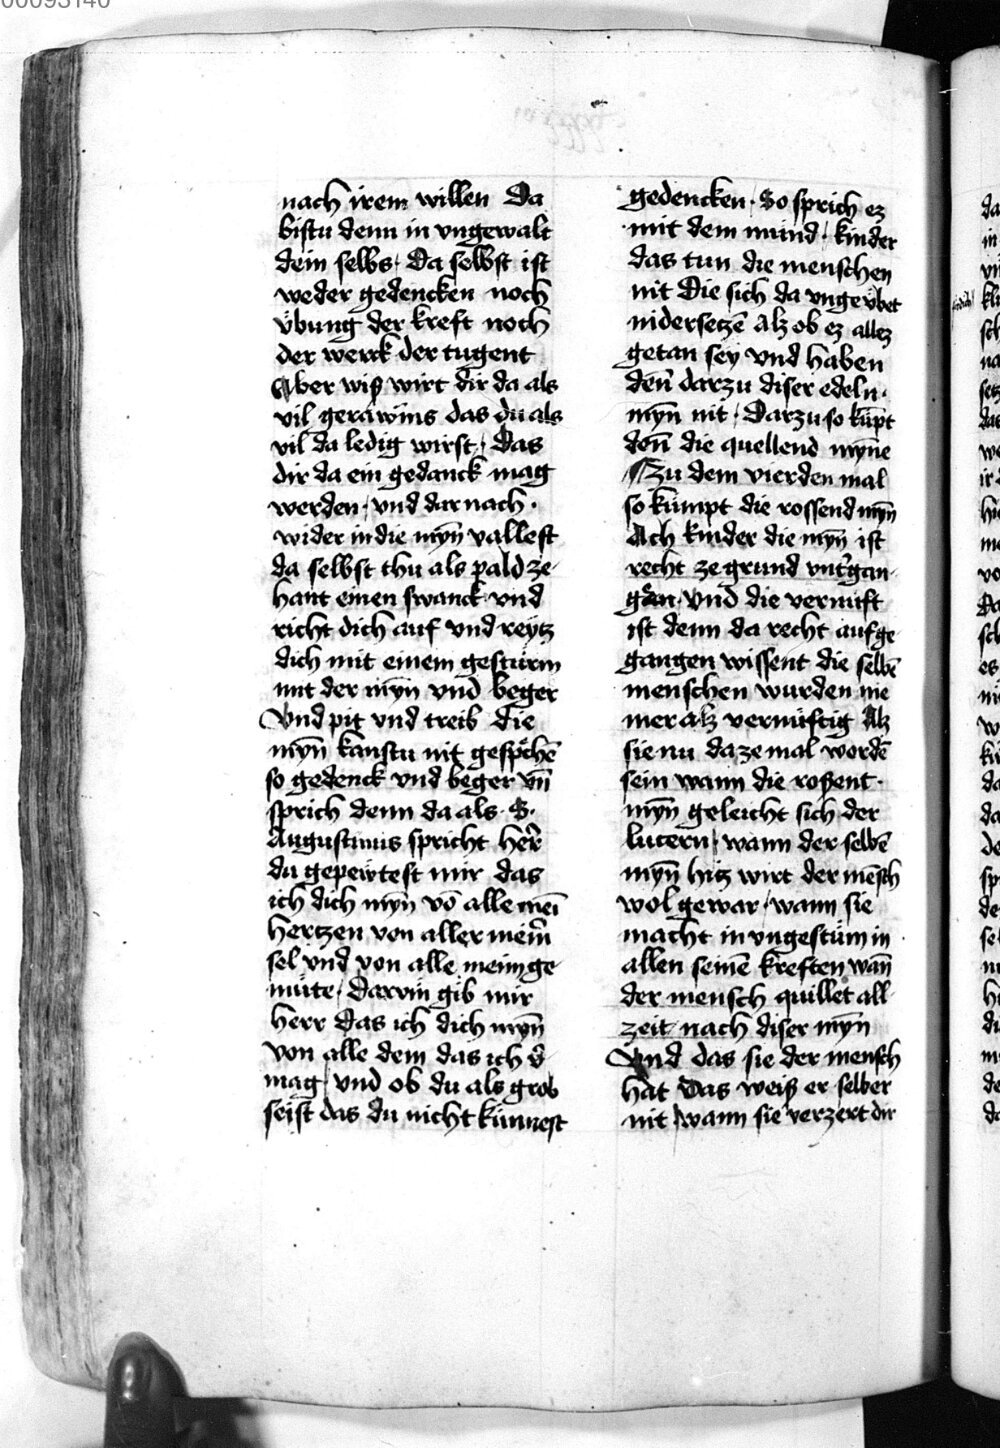 00093140
nach irem willen Da
bistu denn in vngewalt
dein selbs · Da selbst ist
weder gedencken noch
vbung der kreft noch
der werck der tugent
Aber wiß wirt dir da als
vil gerawms das du als
vil da ledig wirst / Das
dir da ein gedanck mag
werden · vnd dar nach ·
wider in die myn̄ vallest
da selbst thu als pald ze
hant einen swanck vnd
richt dich auf vnd reytz
dich mit einem gesturm
mit der myn̄ vnd beger
Vnd pit vnd treib die
myn̄ kanstu nit gesp̄chē
so gedenck vnd beger vn̄
sprich denn da als · S ·
Augustinus spricht her̄
du gepewtest mir das
ich dich myn̄ vō alle mei
hertzen von aller meīn
sel vnd von alle meim ge
müte · Darvm gib mir
herr Das ich dich myn̄
von alle dem das ich d̄
mag / vnd ob du als grob
seist das du nicht künnest
gedencken · So sprich ez
mit dem mund / kinder
das tun die menschen
nit Die sich da vngevbet
nidersetzē alz ob ez allez
getan sey vnd haben
den̄ darzu diser edeln ·
myn̄ nit / Darzu so kūpt
den̄ die quellend myne
Zu dem vierden mal
so kumpt die rossend myn̄
Ach kinder die myn̄ ist
recht ze grund vnt'gan
gen · Vnd die vernuft
ist denn da recht aufge
gangen wissent die selbē
menschen wurden nie
mer alz vernüftig Alz
sie nu da ze mal wordē
sein wann die roßent ·
myn̄ geleicht sich der
lucern / wann der selbē
myn̄ hitz wirt der mēsch
wol gewar / wann sie
macht in vngestüm in
allen seinē kreften wan̄
der mensch quillet all
zeit nach diser myn̄
Vnd das sie der mensch
hat Das weiß er selber
nit / wann sie verzert dir